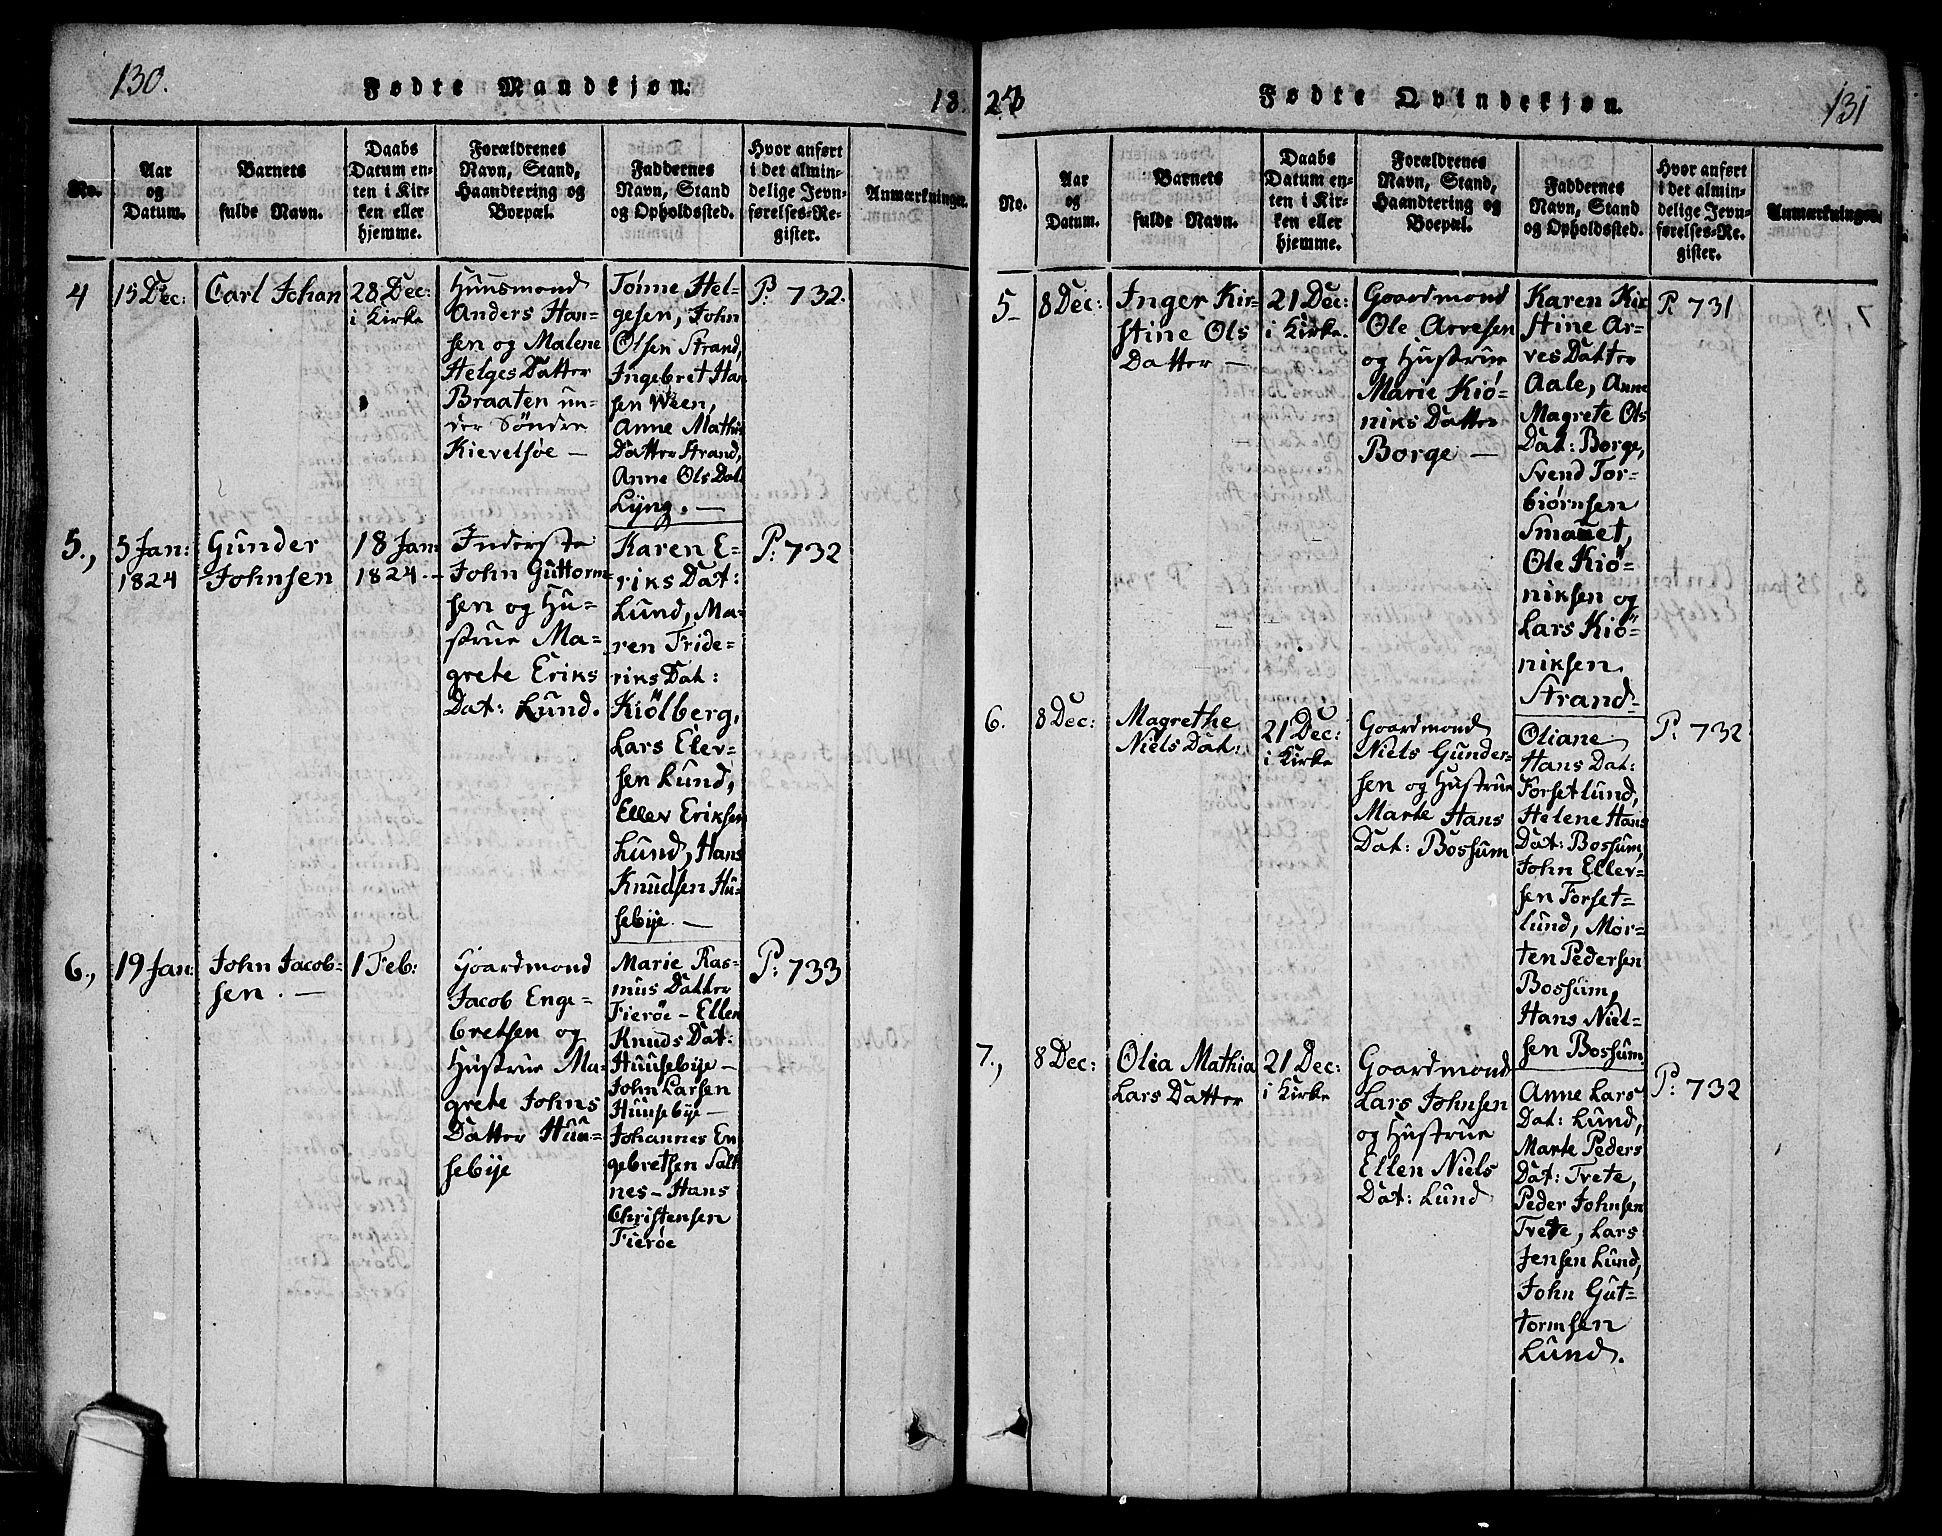 130.
Fødte Mandkjøn.
18
No.
Aar
og
Datum.
Barnets
fulde Navn.
Daabs
Datum en-
ten i Kir-
ken eller
hjemme.
Forældrenes
Navn, Stand,
Haandtering og
Boepæl.
Faddernes
Navn, Stand
og Opholdssted.
Hvor anført
i det almin-
delige Jevn-
førelses-Re-
gister.
Anmærkninger.
4
15 Dec:
Carl Johan
28 Dec:
i Kirke
Huusmond
Anders Han-
sen og Malene
Helges Datter
Braaten un-
der Söndre
Kievelsøe —
Tønne Hel-
gesen, John
Olsen Strand,
Ingebret Han
sen Ween,
Anne Mathis
Datter Strand,
Anne Ols Dat
Lÿng. —
P: 732.
5.,
5 Jan:
1824
Gunder
Johnsen
18 Jan
1824. –
Inderste
John Guttorm-
sen og Hu-
strue Ma-
grete Eriks
Dat: Lund.
Karen E-
riks Dat:
Lund, Ma-
ren Fride-
riks Dat:
Kiölberg,
Lars Elev-
sen Lund,
Ellev Eriksen
Lund, Hans
Knudsen Hu-
sebÿe. —
P: 732
6.,
19 Jan:
John Jacob-
sen. —
1 Feb:
Goardmond
Jacob Enge-
bretsen og
Hustrue Ma-
grete Johns
Datter Huu-
sebÿe
Marie Ras-
mus Datter
Fierøe – Ellen
Knuds Dat:
Huusebÿe –
John Larsen
Huusebÿe –
Johannes En
gebretsen Salt
nes – Hans
Christensen
Fierøe
P: 733
Fødte Qvindekjøn.
131
No.
Aar
og
Datum.
Barnets
fulde Navn.
Daabs
Datum en-
ten i Kir-
ken eller
hjemme.
Forældrenes
Navn, Stand,
Haandtering og
Boepæl.
Faddernes
Navn, Stand
og Opholdssted.
Hvor anført
i det almin-
delige Jevn-
førelses-Re-
gister.
Anmærkninger.
5
8 Dec:
Inger Kir-
stine Ols
Datter —
21 Dec:
i Kirke.
Goardmond
Ole Arvesen
og Hustrue
Marie Kiö-
niks Datter
Borge —
Karen Kir
stine Ar-
ves Datter
Aale, Anne
Magrete Ols
Dat: Borge,
Svend Tor-
biørnsen
Smauet,
Ole Kiö-
niksen og
Lars Kiö-
niksen
Strand
P: 731
6.
8 Dec:
Magrethe
Niels Dat:
21 Dec:
i Kirke
Goardmond
Niels Gunder-
sen og Hustrue
Marte Hans
Dat: Bossum
Oliane
Hans Dat:
Forsetlund,
Helene Hans
Dat: Bossum,
John Ellev-
sen Forset-
lund, Mor-
ten Pedersen
Bossum,
Hans Niel-
sen Bossum
P: 732
7.,
8 Dec:
Olia Mathia
Lars Datter
21 Dec:
i Kirke
Goardmond
Lars Johnsen
og Hustrue
Ellen Niels
Dat: Lund
Anne Lars
Dat: Lund,
Marte Peders
Dat: Tvete,
Peder Johnsen
Tvete, Lars
Jensen Lund,
John Gut-
tormsen
Lund.
P: 732